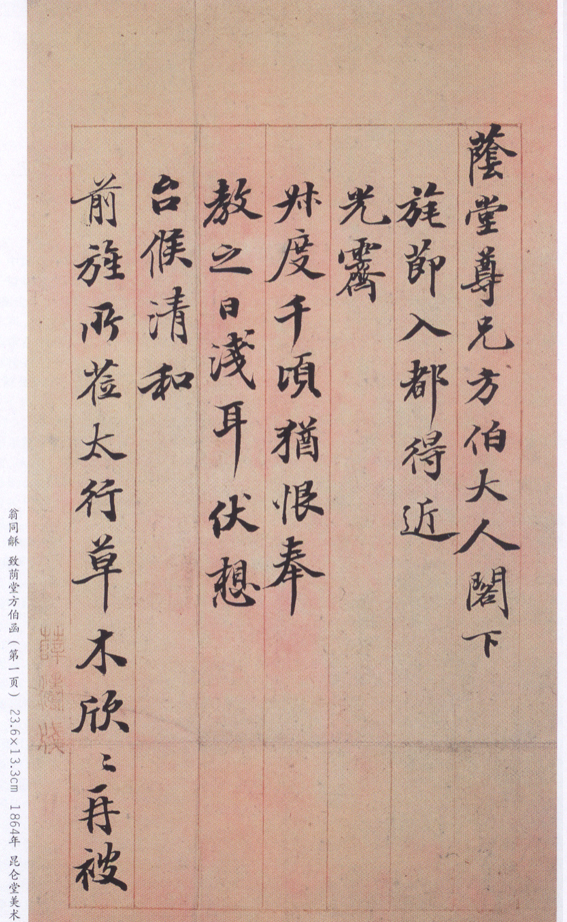 蔭堂尊兄方伯大人閣下
旄節入都得近
光霽
叔度千頃猶恨奉
教之日淺耳伏想
台候清和
前旌所莅太行草木欣〻再被
翁同龢 致荫堂方伯函（第一页） 23.6×13.3cm 1864年 昆仑堂美术